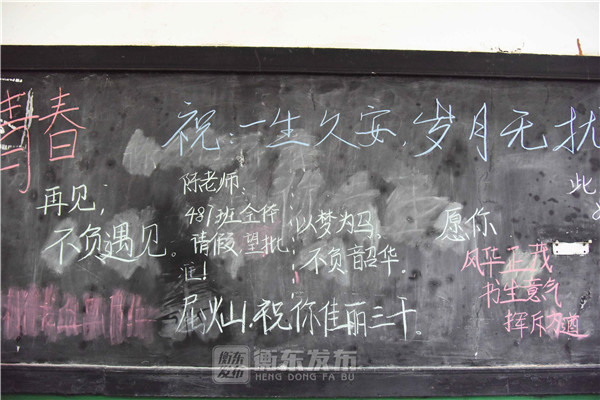 青春
祝:一生久安,岁月无扰
再见,
不负遇见。
陈老师:
487班全体
请假,望批
准!
以梦为马,
不负韶华。
愿你
风华正茂
书生意气
挥斥方遒
此
祝你佳丽三千。
衡东发布
衡东发布
HENG DONG FA BU